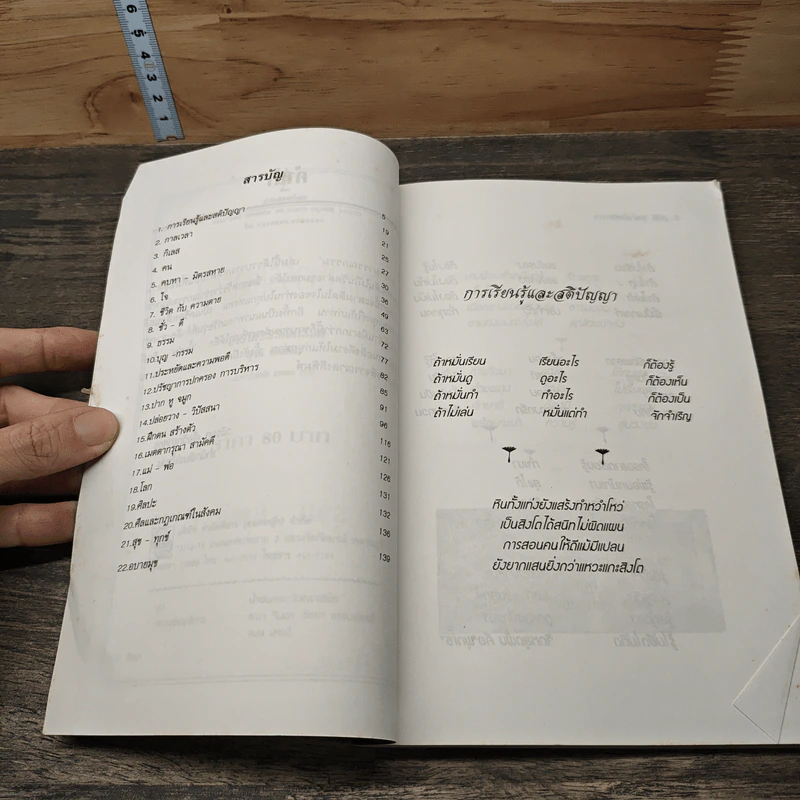 6 5 4 3 2 1
สารบัญ
1. การเรียนรู้และสติปัญญา 5
2. กาลเวลา 19
3. กิเลส 21
4. คน 25
5. คบหา - มิตรสหาย 27
6. ใจ 30
7. ชีวิต กับ ความตาย 36
8. ชั่ว - ดี 49
9. ธรรม 63
10.บุญ -กรรม 72
11.ประหยัดและความพอดี 77
12.ปรัชญาการปกครอง การบริหาร 82
13.ปาก หู จมูก 85
14.ปล่อยวาง - วิปัสสนา 91
15.ฝึกตน สร้างตัว 96
16.เมตตากรุณา สามัคคี 116
17.แม่ - พ่อ 121
18.โลก 126
19.ศิลปะ 131
20.ศีลและกฎเกณฑ์ในสังคม 132
21.สุข - ทุกข์ 136
22.อบายมุข 139
การเรียนรู้และสติปัญญา
ถ้าหมั่นเรียน เรียนอะไร ก็ต้องรู้
ถ้าหมั่นดู ดูอะไร ก็ต้องเห็น
ถ้าหมั่นทำ ทำอะไร ก็ต้องเป็น
ถ้าไม่เล่น หมั่นแต่ทำ จักจำเริญ
หินทั้งแท่งยังแสร้งทำหวำโหว่
เป็นสิงโตได้สนิทไม่ผิดแผน
การสอนคนให้ดีแม้มีแปลน
ยังยากแสนยิ่งกว่าแหวะแกะสิงโต